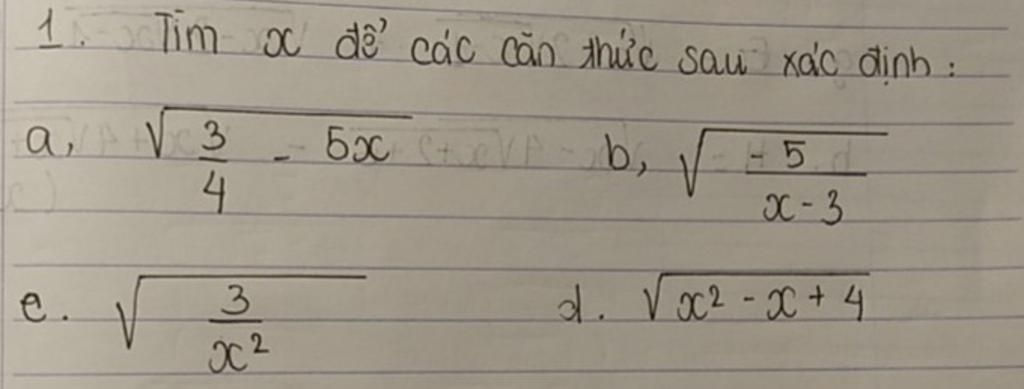 1. Tìm x để các căn thức sau xác định:
a, √(3/4 - 5x) b, √(-5/(x-3))
c. √(3/x²) d. √(x² - x + 4)